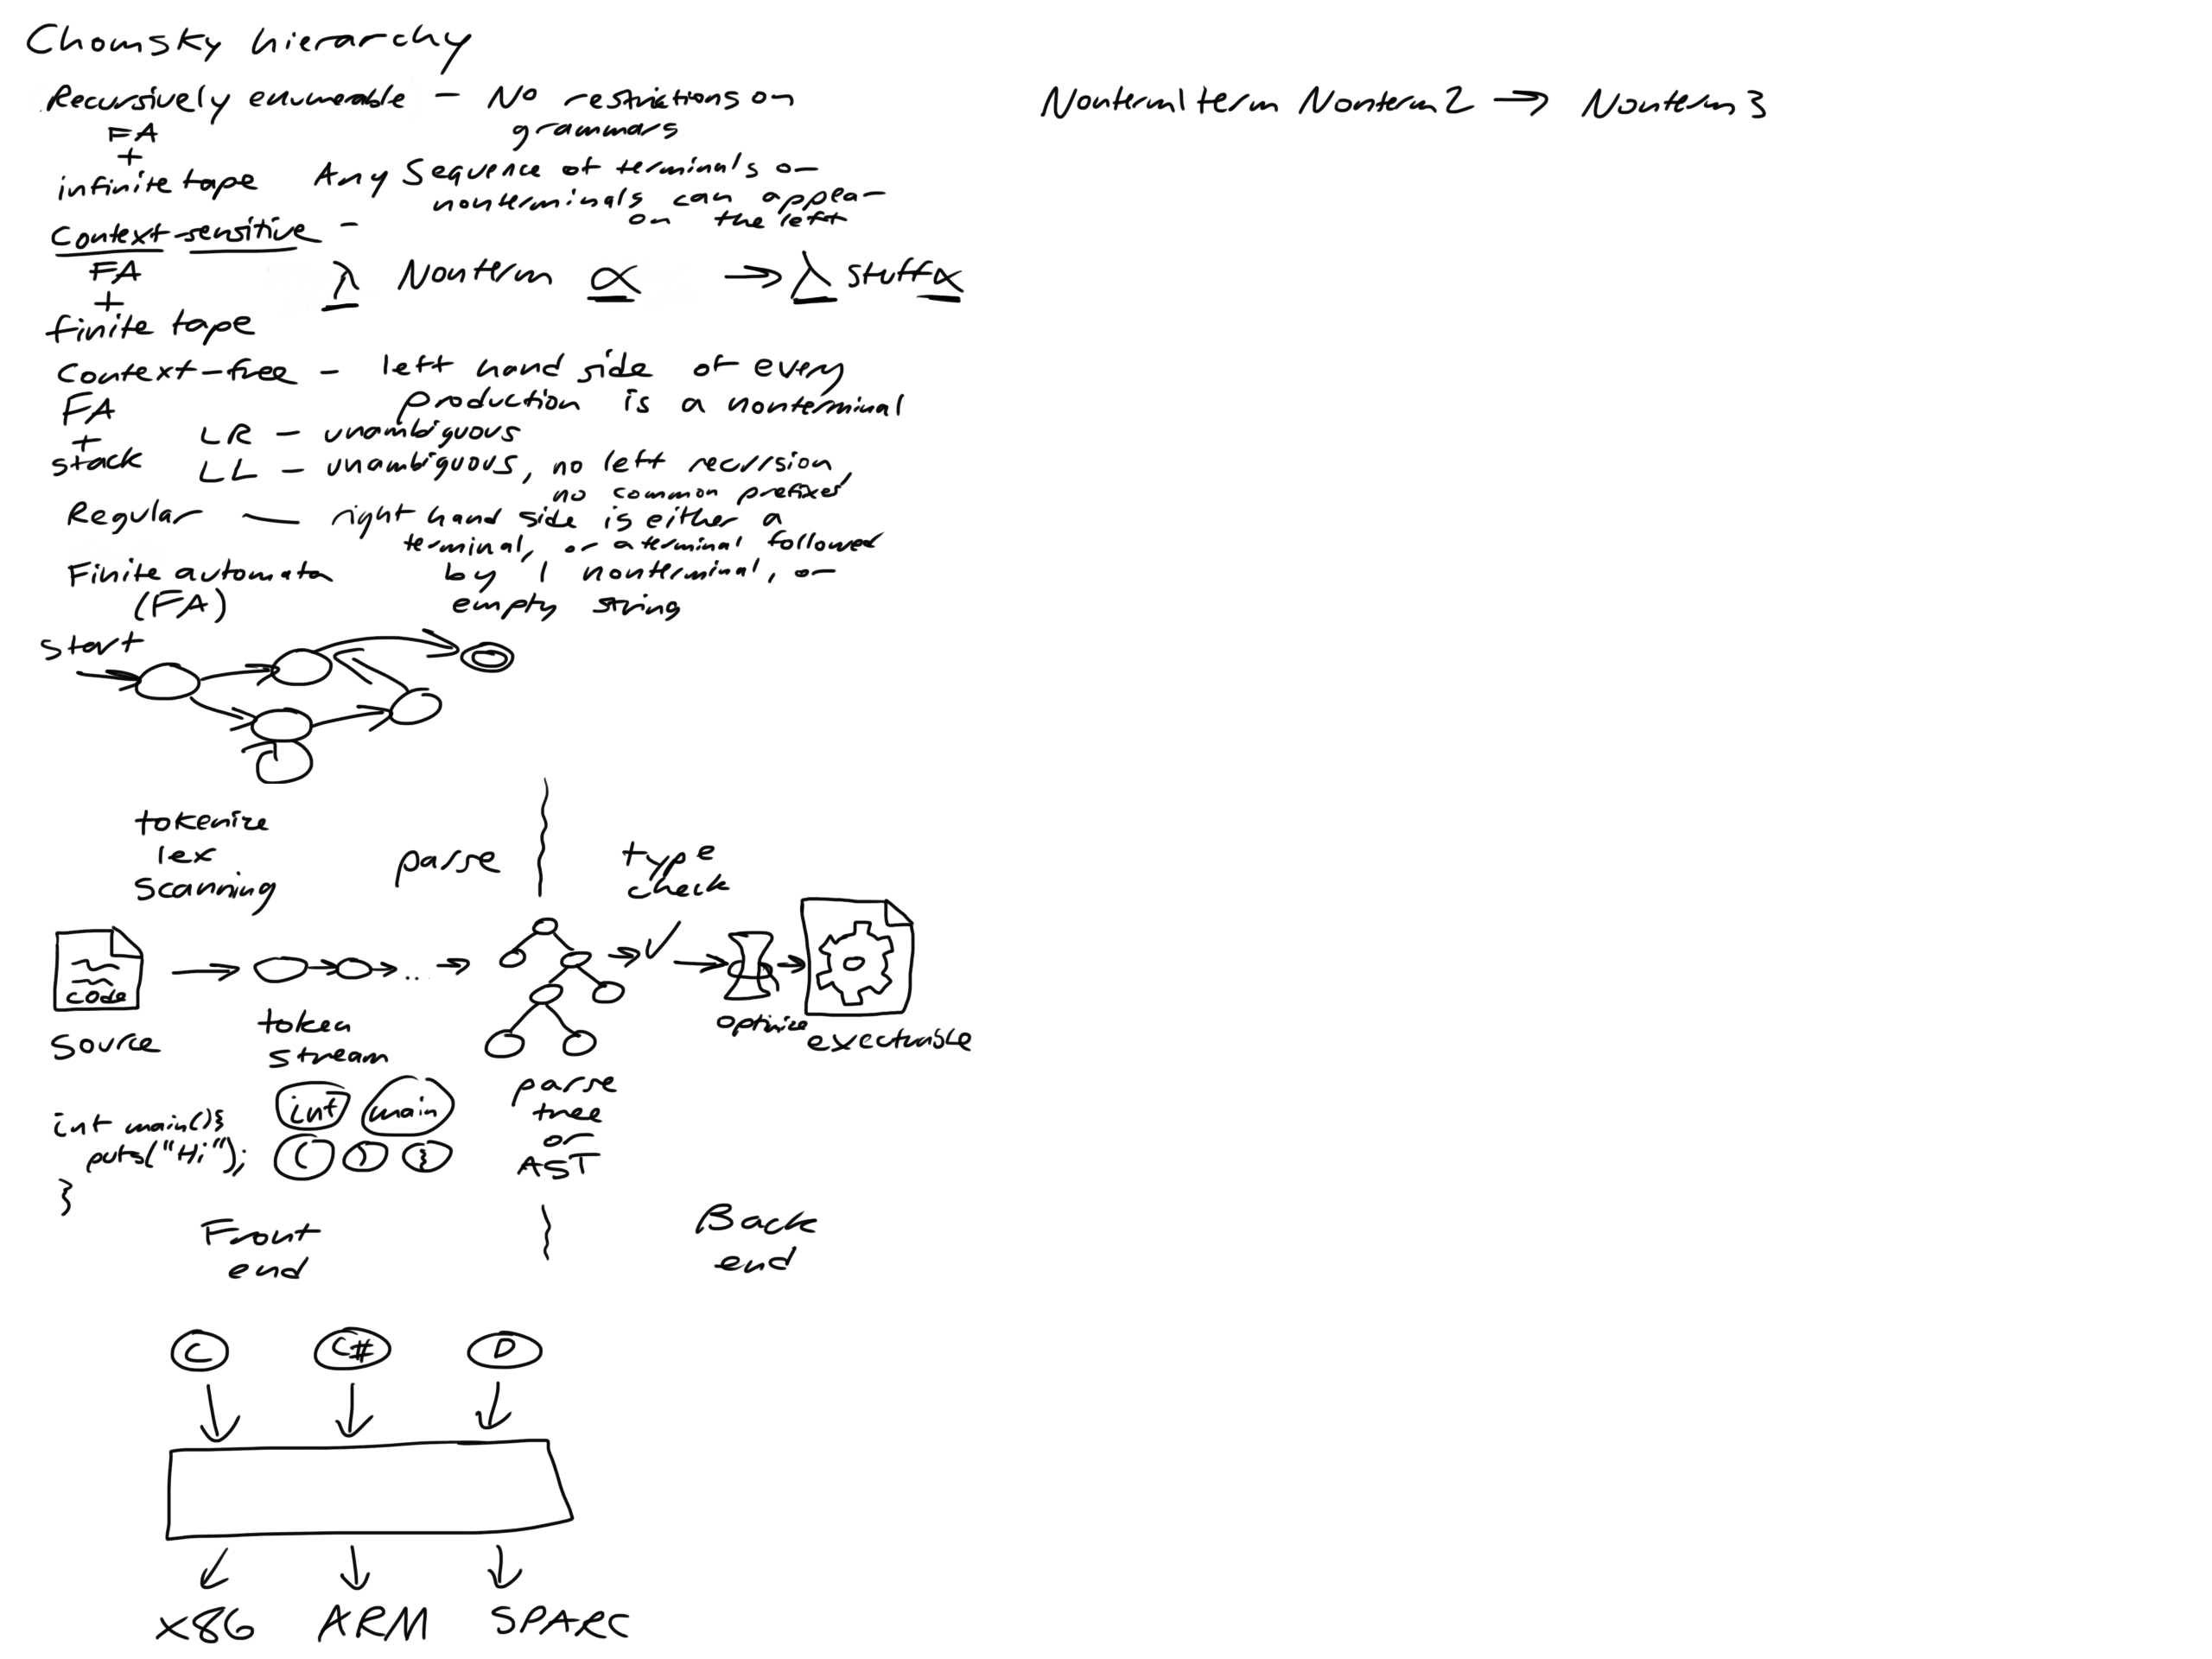 Chomsky hierarchy
Recursively enumerable - No restrictions on
grammars
Nonterm1 term Nonterm2 → Nonterm3
FA
+
infinite tape Any Sequence of terminals or
nonterminals can appear
on the left
Context-sensitive -
FA
+
finite tape
λ Nonterm α → λ stuff α
Context-free - left hand side of every
production is a nonterminal
FA
+
stack
LR - unambiguous
LL - unambiguous, no left recursion,
no common prefixes
Regular — right hand side is either a
terminal, or a terminal followed
by 1 nonterminal, or
empty string
Finite automata
(FA)
start
tokenize
lex
scanning
parse
type
check
code
source
token
stream
...
optimize
executable
int main(){
puts("Hi");
}
int main
( ) {
parse
tree
or
AST
Front
end
Back
end
C C# D
x86 ARM SPARC